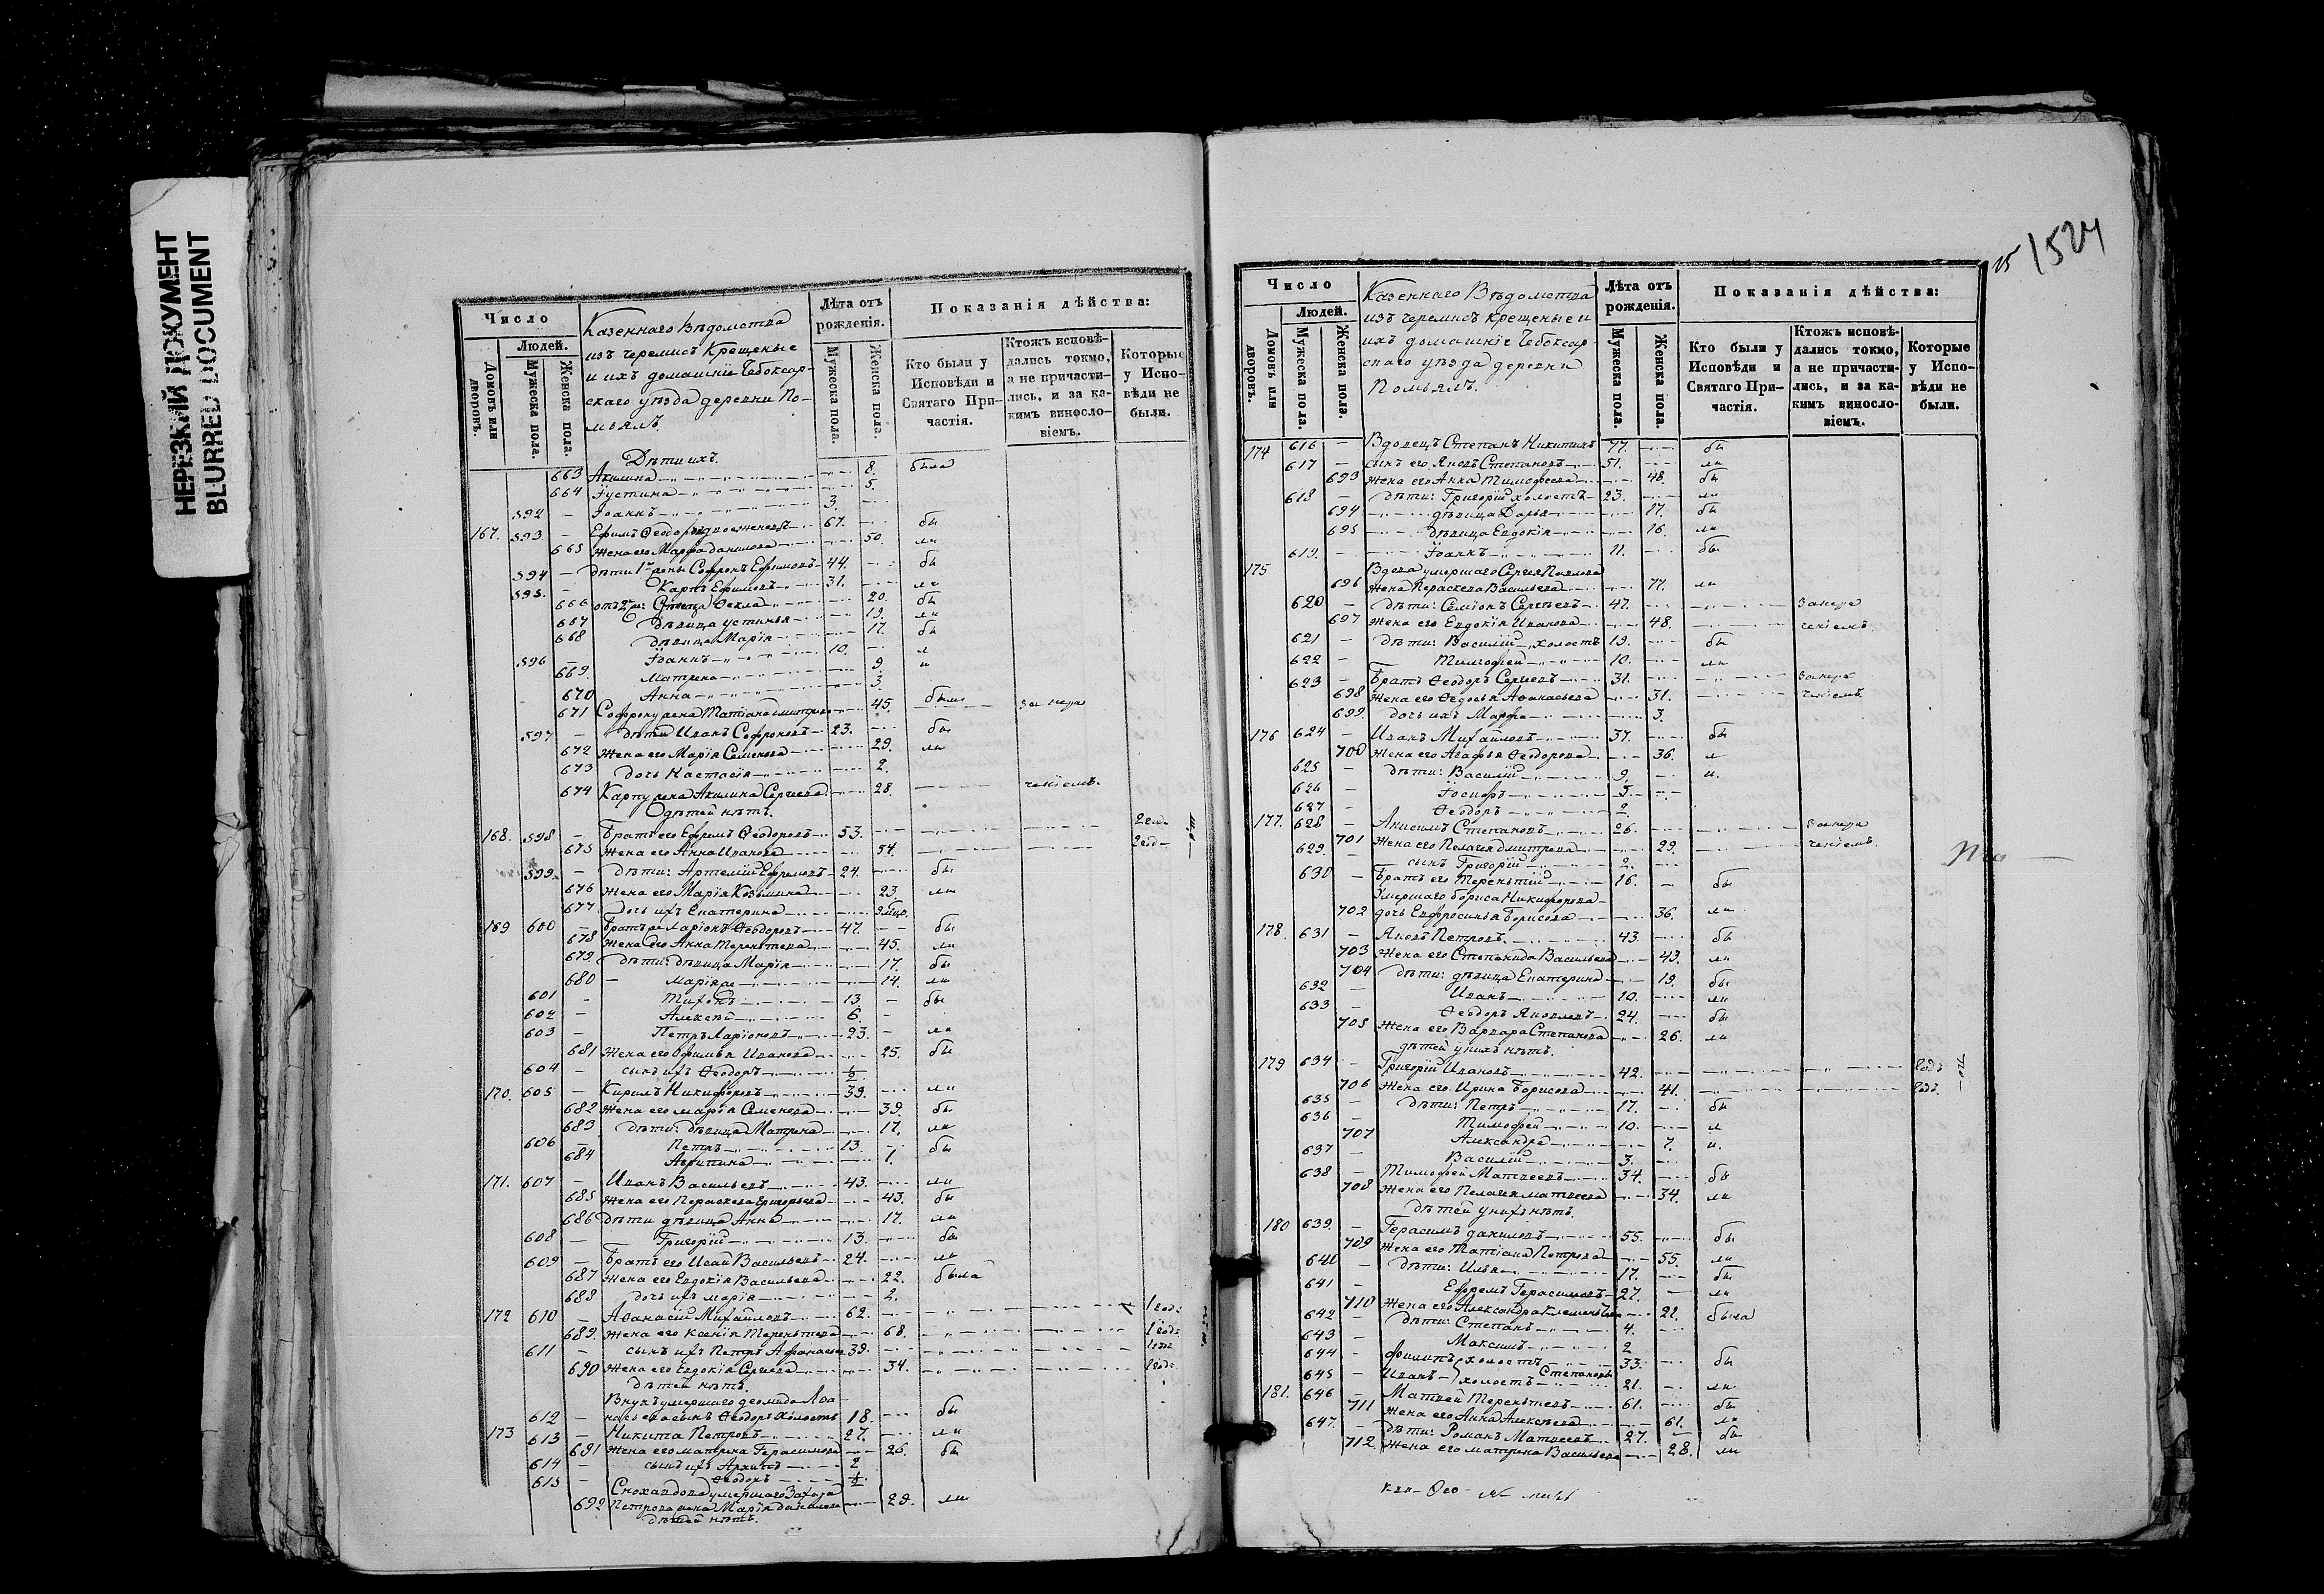 НЕРЕЗКИЙ ДОКУМЕНТ
BLURRED DOCUMENT
Число
Людей.
Домовъ или дворовъ.
Мужеска пола.
Женска пола.
Казеннаго Вѣдомства
изъ черемисъ Крещеные
и ихъ домашніе Чебоксар-
скаго уѣзда деревни По-
мьялъ
Лѣта отъ рожденія.
Мужеска пола.
Женска пола.
Показанія дѣйства:
Кто были у Исповѣди и Святаго При-частія.
Ктожъ исповѣ-дались токмо, а не причасти-лись, и за ка-кимъ виносло-віемъ.
Которые у Испо-вѣди не были.
Дѣти ихъ.
663 Акилина 8. была
664 Іустина 5.
592 — Іоаннъ 3.
167. 593 — Ефимъ Ѳеодоровъ двоеженевъ 67. бы
665 Жена его Марфа Данилова 50. ли
594 — дѣти 1й жены Софронъ Ефимовъ 44. бы
595. — Карпъ Ефимовъ 31. ли
666 Ѳекла 20. бы
667 Дѣвица Устинья 19. ли
668 Дѣвица Марія 17. бы
596 — Іоаннъ 10. л
669. Матрена 9. и
670 Анна 3.
671 Софрону жена Татіана Дмитрева 45. была
597 — Дѣти Иванъ Софроновъ 23. бы
672 Жена его Марія Семенова 29. ли
673 дочь Настасія 2.
674 Карпу жена Акилина Сергеева 28. ченіемъ.
Одѣтей нѣтъ.
168. 598 — Братъ его Ефремъ Ѳеодоровъ 53. 2 года
675 Жена его Анна Иванова 54. 2 год
599. — Дѣти: Артемій Ефремовъ 24. бы
676 Жена его Марія Козьмина 23. ли
677 дочь ихъ Екатерина
169 600 — Братъ же Ларіонъ Ѳеодоровъ 47. бы
678 Жена его Анна Терентьева 45. ли
679. Дѣти: дѣвица Марія 17. бы
680 — Марія же 14. ли
601 — Тихонъ 13. бы
602 — Алексѣй 6.
603 — Петръ Ларіоновъ 23. ли
681 Жена его Офимья Иванова 25. бы
604 — сынъ ихъ Ѳеодоръ ½
170. 605 — Кирилъ Никифоровъ 39. ли
682 Жена его Марія Семенова 39. бы
683 дѣти: дѣвица Матрена 17. ли
606 — Петръ 13. бы
684 Агрипина 1.
171. 607 — Иванъ Васильевъ 43. ли
685 Жена его Пераскева Григорьева 43. бы
686 Дѣти дѣвица Анна 17. ли
608 — Григорій 13. бы
609 — Братъ его Исай Васильевъ 24. ли
687 Жена его Евдокія Васильева 22. была
688 дочь ихъ Марія 2.
172 610 — Аѳанасій Михайловъ 62. 1 годъ
689. Жена его Ксенія Терентьева 68. 1 годъ
611 — сынъ ихъ Петръ Афанасьев 39. 1 годъ
690 Жена его Евдокія Сергеева 34. 1 годъ
дѣтей нѣтъ.
Внукъ умершаго Деомида
612 — сынъ Ѳеодоръ холостъ 18. бы
173 613 — Никита Петровъ 27. ли
691 Жена его Матрена Герасимова 26. бы
614 сынъ ихъ Архипъ 2
615 — Ѳеодоръ ½
Сноха вдова умершаго Захара
692 Петрова жена Марія Данилова 28. ли
дѣтей нѣтъ.
25 1524
Число
Людей.
Домовъ или дворовъ.
Мужеска пола.
Женска пола.
Казеннаго Вѣдомства
изъ черемисъ крещеные и
ихъ домашніе Чебоксар
скаго уѣзда деревни
Помьялъ.
Лѣта отъ рожденія.
Мужеска пола.
Женска пола.
Показанія дѣйства:
Кто были у Исповѣди и Святаго При-частія.
Ктожъ исповѣ-дались токмо, а не причасти-лись, и за ка-кимъ винosло-віемъ.
Которые у Испо-вѣди не были.
174 616 — Вдовецъ Степанъ Никитинъ 77. бы
617 — сынъ его Яковъ Степановъ 51. ли
693 Жена его Анна Тимофеева 48. бы
618 — дѣти: Григорій холостъ 23. ли
694 дѣвица Дарья 17. бы
695 дѣвица Евдокія 16. ли
619. — Іоаннъ 11. бы
175 Вдова умершаго Сергея Павлова
696 Жена Пераскева Васильева 77. ли
620 — Дѣти: Семіонъ Сергѣевъ 47.
697 Жена его Евдокія Иванова 48. ченіемъ.
621 — дѣти: Василій холостъ 19. бы
622 — Тимофей 10. ли
623 — Братъ Ѳеодоръ Сергѣевъ 31.
698 Жена его Ѳедосья Аѳанасьева 31. ченіемъ
699. дочь ихъ Марфа 3.
176 624 — Иванъ Михайловъ 37. бы
700 Жена его Агафья Ѳеодорова 36. л
625 — дѣти: Василій 9. и.
626 — Іосифъ 5.
627 — Ѳеодоръ 2.
177. 628 — Анисимъ Степановъ 26.
701 Жена его Пелагея Дмитрева 29. ченіемъ.
629. сынъ Григорій 2.
630 — Братъ его Терентій 16. бы
Умершаго Бориса Никифорова
702 дочь Евфросинья Борисова 36. ли
178. 631 — Яковъ Петровъ. 43. бы
703 Жена его Степанида Васильева 43. ли
704 дѣти: дѣвица Екатерина 19. бы
632 — Иванъ 10. ли
633 — Ѳеодоръ Яковлевъ 24. бы
705 Жена его Варвара Степанова 26. ли
дѣтей у нихъ нѣтъ.
179 634 — Григорій Ивановъ 42. 2 год
706 Жена его Ирина Борисова 41. 2 год.
635 — дѣти: Петръ 17. бы
636 — Тимофей 10. л
707 Александра 7. и.
637 — Василій 3.
638 — Тимофей Матвеевъ 34. бы
708 Жена его Пелагея Матвеева 34. ли
дѣтей у нихъ нѣтъ.
180 639. — Герасимъ Даниловъ 55. бы
709 Жена его Татіана Петрова 55. ли
640 — дѣти: Илья 17. бы
641 — Ефремъ Герасимовъ 27. ли
710 Жена его Александра Клементьева 22. была
642 — Дѣти: Степанъ 4.
643 — Максимъ 2
644 — Филипъ холостъ 33. бы
645 — Иванъ холостъ Степановы 21. ли
181. 646 — Матвей Терентьевъ 61. бы
711 Жена его Анна Алексеева 61. ли
647. — Дѣти: Романъ Матвеевъ 27. бы
712. Жена его Матрена Васильева 28. ли